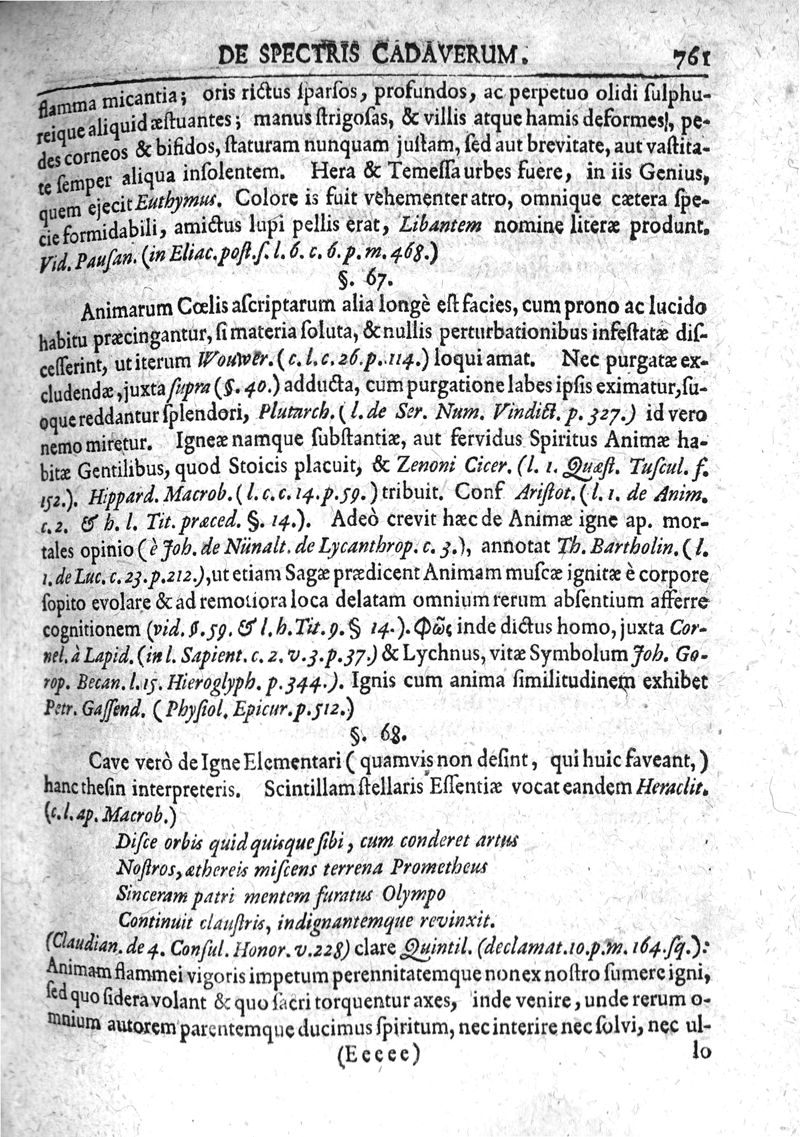 DE SPECTRIS CADAVERUM. 761
flamma micantia; oris rictus ſparſos, profundos, ac perpetuo olidi ſulphu-
reique aliquid æſtuantes; manus ſtrigoſas, & villis atque hamis deformes, pe-
des corneos & bifidos, ſtaturam nunquam juſtam, ſed aut brevitate, aut vaſtita-
te ſemper aliqua inſolentem. Hera & Temeſſa urbes fuere, in iis Genius,
quem ejecit Euthymus. Colore is fuit vehementer atro, omnique cætera ſpe-
cie formidabili, amictus lupi pellis erat, Libantem nomine literæ produnt.
Vid. Pauſan. (in Eliac. poſt. ſ. l. 6. c. 6. p. m. 468.)
§. 67.
Animarum Cœlis aſcriptarum alia longè eſt facies, cum prono ac lucido
habitu præcingantur, ſi materia ſoluta, & nullis perturbationibus infeſtatæ diſ-
ceſſerint, ut iterum Wouwer. (c. l. c. 26. p. 114.) loqui amat. Nec purgatæ ex-
cludendæ, juxta ſupra (§. 40.) adducta, cum purgatione labes ipſis eximatur, ſu-
oque reddantur ſplendori, Plutarch. (l. de Ser. Num. Vindict. p. 327.) id vero
nemo miretur. Igneæ namque ſubſtantiæ, aut fervidus Spiritus Animæ ha-
bitæ Gentilibus, quod Stoicis placuit, & Zenoni Cicer. (l. 1. Quæſt. Tuſcul. f.
152.). Hippard. Macrob. (l. c. c. 14. p. 59.) tribuit. Conf Ariſtot. (l. 1. de Anim.
c. 2. & h. l. Tit. præced. §. 14.). Adeò crevit hæc de Animæ igne ap. mor-
tales opinio (è Joh. de Nünalt. de Lycanthrop. c. 3.), annotat Th. Bartholin. (l.
1. de Luc. c. 23. p. 212.), ut etiam Sagæ prædicent Animam muſcæ ignitæ è corpore
ſopito evolare & ad remotiora loca delatam omnium rerum abſentium afferre
cognitionem (vid. §. 59. & l. h. Tit. 9. § 14.). Φῶς inde dictus homo, juxta Cor-
nel. à Lapid. (in l. Sapient. c. 2. v. 3. p. 37.) & Lychnus, vitæ Symbolum Joh. Go-
rop. Becan. l. 15. Hieroglyph. p. 344.). Ignis cum anima ſimilitudinem exhibet
Petr. Gaſſend. (Phyſiol. Epicur. p. 512.)
§. 68.
Cave verò de Igne Elementari (quamvis non deſint, qui huic faveant,)
hanc theſin interpreteris. Scintillam ſtellaris Eſſentiæ vocat eandem Heraclit.
(c. l. ap. Macrob.)
Diſce orbis quid quisque ſibi, cum conderet artus
Noſtros, æthereis miſcens terrena Prometheus
Sinceram patri mentem furatus Olympo
Continuit clauſtris, indignantemque revinxit.
(Claudian. de 4. Conſul. Honor. v. 228) clare Quintil. (declamat. 10. p. m. 164. ſq.):
Animam flammei vigoris impetum perennitatemque non ex noſtro ſumere igni,
ſed quo ſidera volant & quo ſacri torquentur axes, inde venire, unde rerum o-
mnium autorem parentemque ducimus ſpiritum, nec interire nec ſolvi, nec ul-
(Eeeee) lo